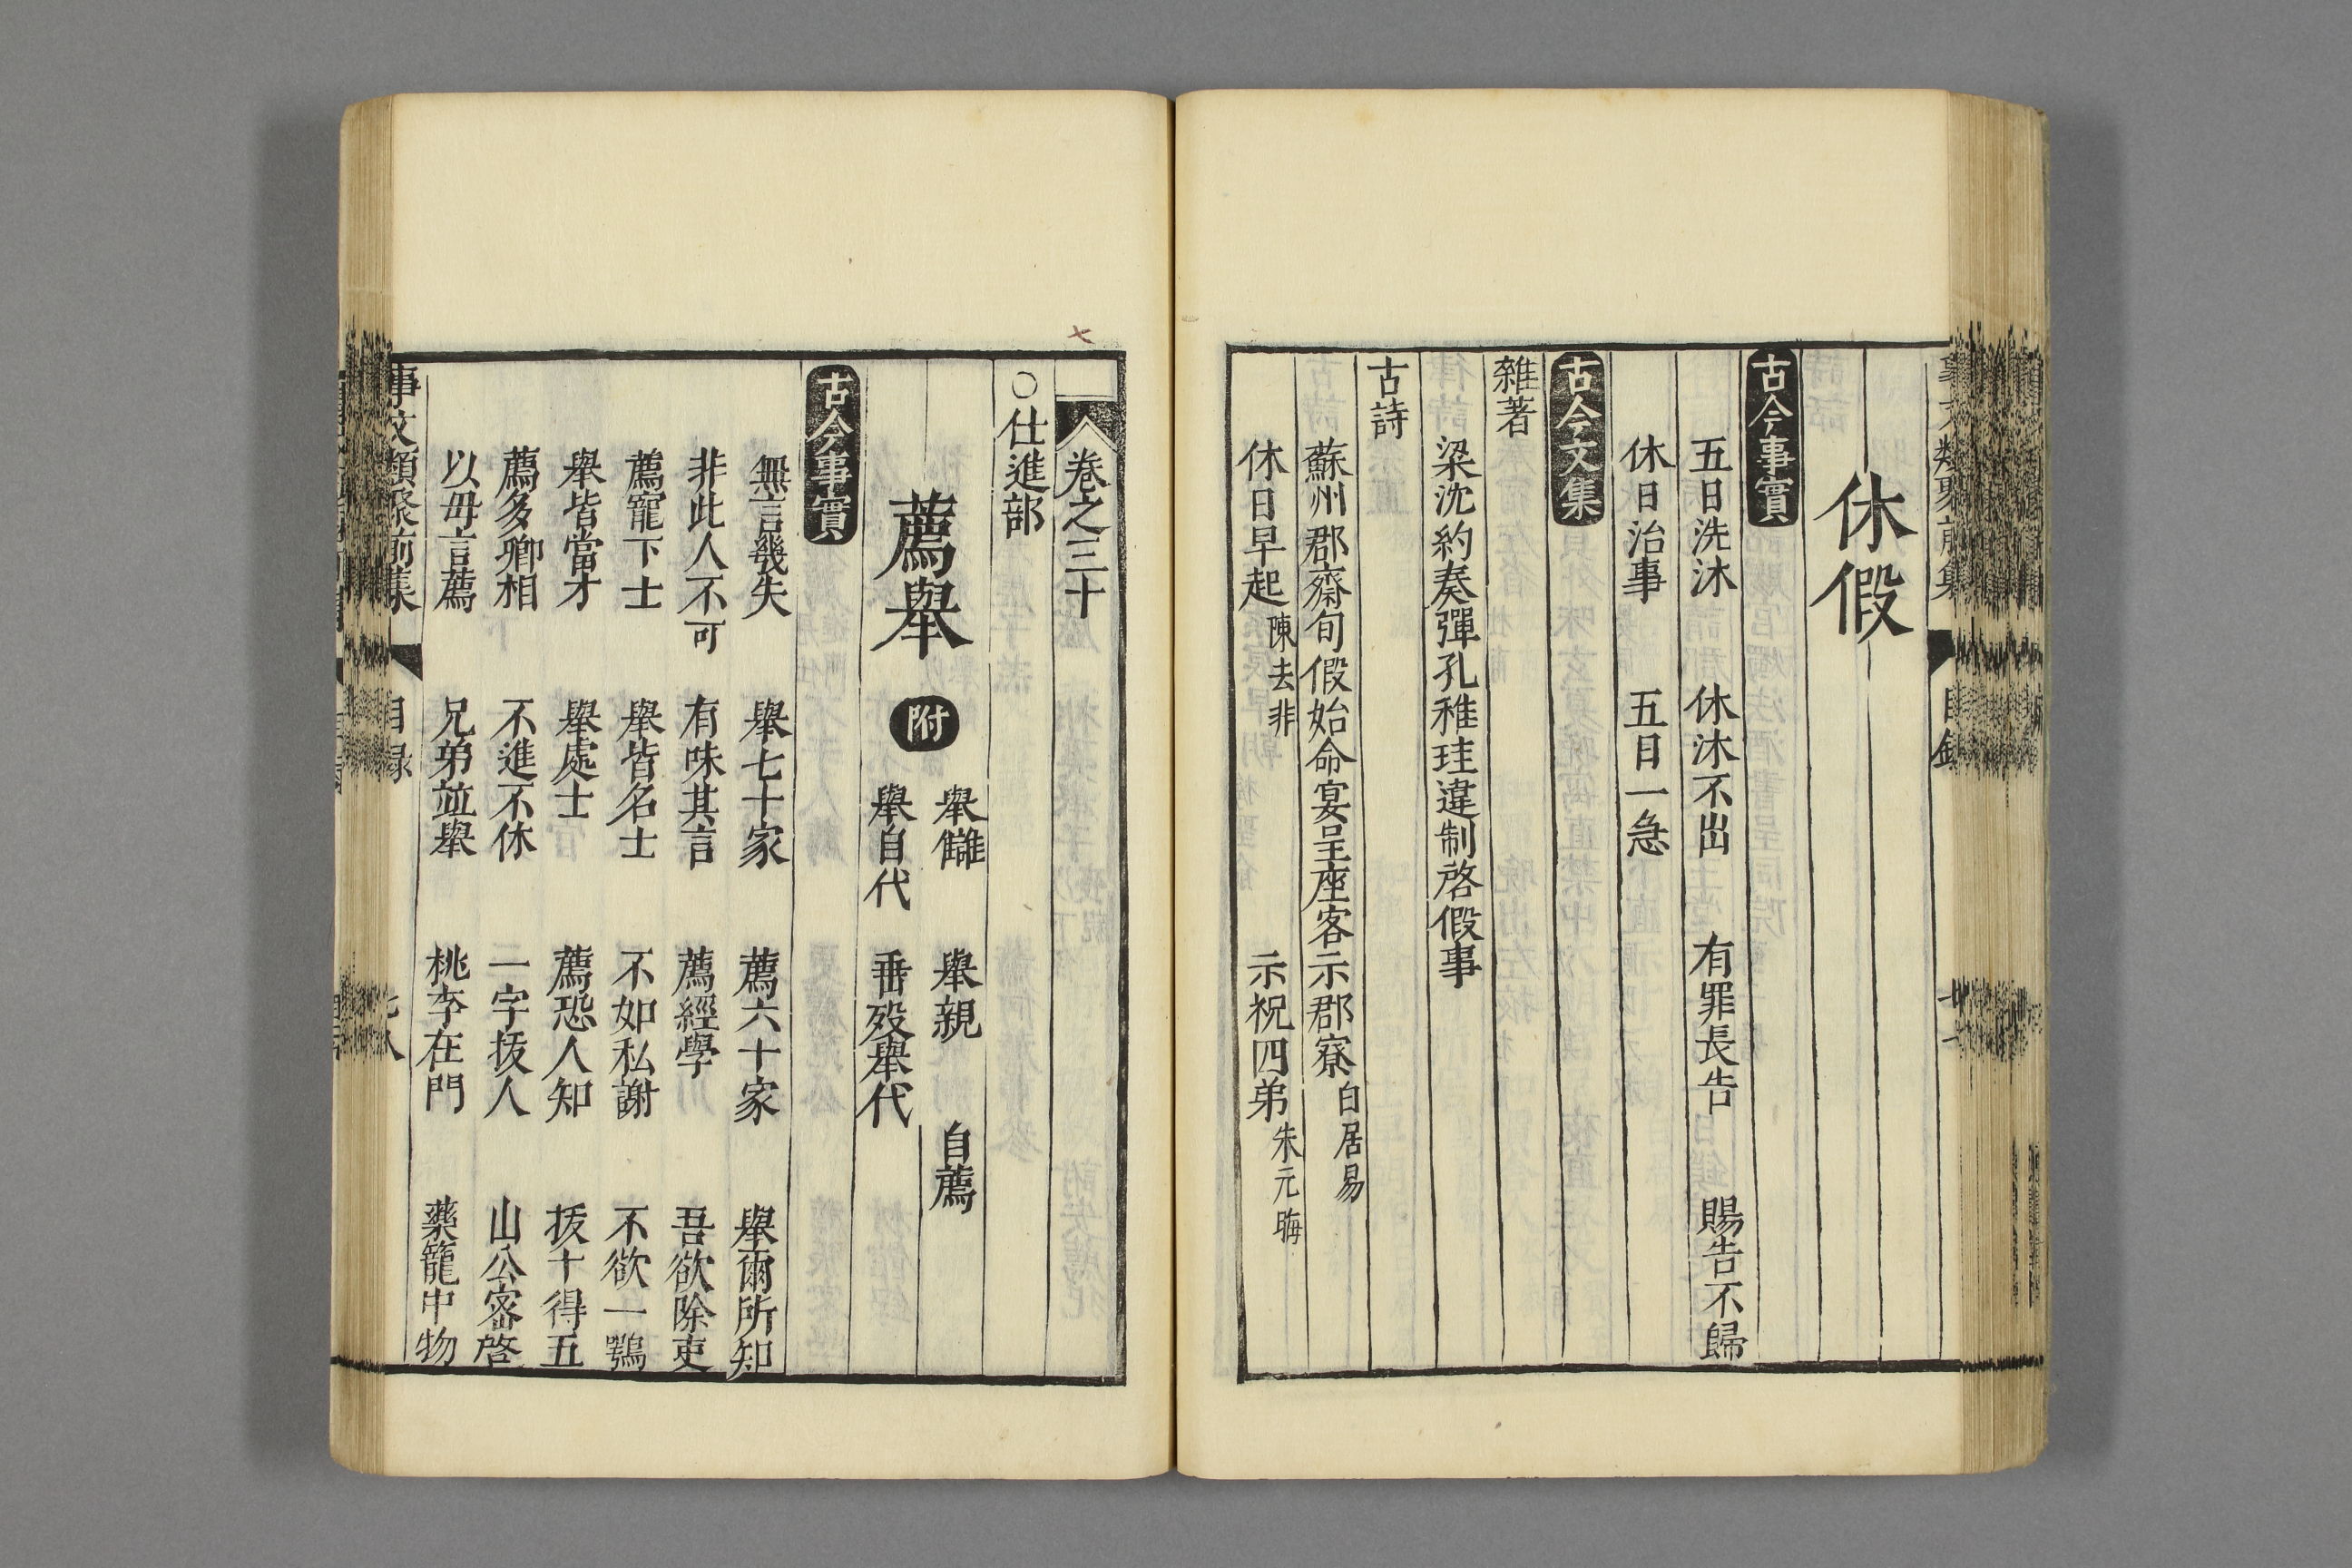 休假
古今事實
五日洗沐 休沐不出 有罪長告 賜告不歸
休日治事 五日一急
古今文集
雜著
梁沈約奏彈孔稚珪違制啓假事
古詩
蘇州郡齋旬假始命宴呈座客示郡寮 白居易
休日早起 陳去非 示祝四弟 朱元晦
七
卷之三十
○仕進部
薦舉 附 舉讎 舉親 自薦
舉自代 垂歿舉代
古今事實
無言幾失 舉七十家 薦六十家 舉爾所知
非此人不可 有味其言 薦經學 吾欲除吏
薦寵下士 舉皆名士 不如私謝 不欲一鶚
舉皆當才 舉處士 薦恐人知 拔十得五
薦多卿相 不進不休 一字拔人 山公密啓
以毋言薦 兄弟並舉 桃李在門 藥籠中物
事文類聚前集 目録